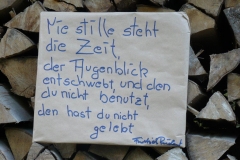 Nie stille steht
die Zeit,
der Augenblick
entschwebt, und den
du nicht benutzt,
den hast du nicht
gelebt